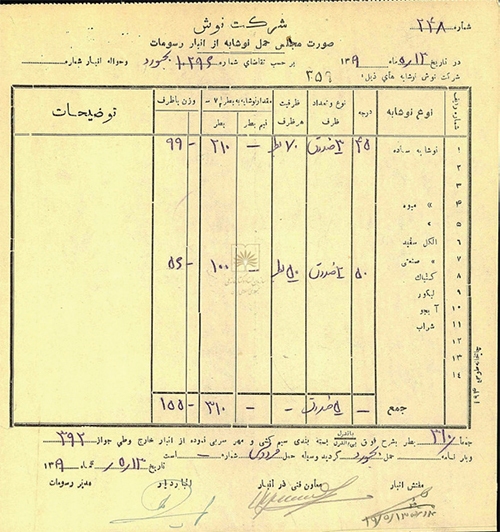 شرکت نوش
شماره ۲۴۸
صورت مجلس حمل نوشابه از انبار رسومات
در تاریخ ۱۳ر۵ ماه ۱۳۱۹ بر حسب تقاضای شماره ۱۰۲۹۶ بجنورد وحواله انبار شماره
شرکت نوش نوشابه های ذیل: ۲۵۹
شماره ردیف نوع نوشابه درجه نوع وتعداد ظرف ظرفیت هرظرف مقدار نوشابه به بطر ۷ـ نیم بطر بطر وزن باظرف توضیحات
۱ نوشابه ساده ۴۵ ۳ صندوق ۷۰ بطر — ۲۱۰ — ۹۹ -
۲
۳
۴ » میوه
۵ »
۶ الکل سفید
۷ » صنعتی
۸ کنیاک ۵۰ ۲ صندوق ۵۰ بطر — ۱۰۰ — ۵۶ -
۹ لیکور
۱۰ آبجو
۱۱ شراب
۱۲
۱۳
۱۴
جمع — ۵ صندوق — — ۳۱۰ — ۱۵۵ -
جمعا ۳۱۰ بطر بشرح فوق بانضمام بسته بندی سیم کشی و مهر سربی نموده از انبار خارج وطی جواز ۳۹۲
وبارنامه حمل بجنورد گردید وسیله حمل فردوسی شماره — است
تاریخ ۱۳ر۵ ماه ۱۳۱۹
مفتش انبار معاون فنی در انبار انباردار مدیر رسومات